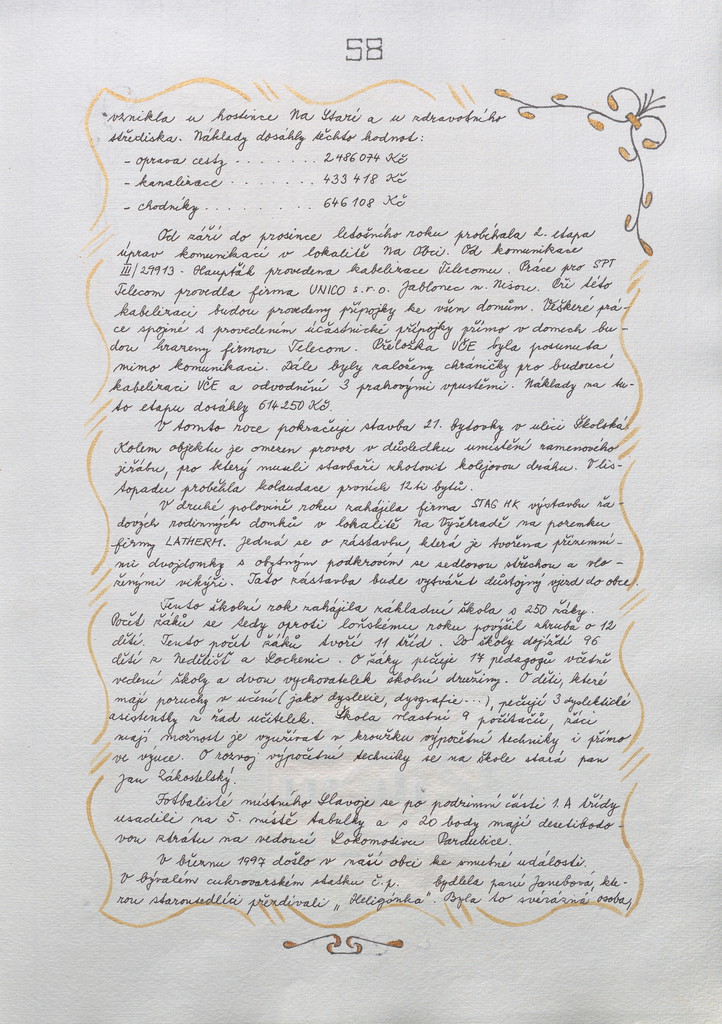 58
vznikla u hostince Na Staré a u zdravotního
střediska. Náklady dosáhly těchto hodnot:
- oprava cesty . . . . . . 2 486 074 Kč
- kanalizace . . . . . . . 433 418 Kč
- chodníky . . . . . . . . 646 108 Kč
Od září do prosince letošního roku probíhala 2. etapa
úprav komunikací v lokalitě Na Obci. Od komunikace
III/29913 - Haupťák provedena kabelizace Telecomu. Práce pro SPT
Telecom provedla firma UNICO s.r.o. Jablonec n. Nisou. Při této
kabelizaci budou provedeny přípojky ke všem domům. Veškeré prá-
ce spojné s provedením účastnické přípojky přímo v domech bu-
dou hrazeny firmou Telecom. Přeložka VČE byla posunuta
mimo komunikaci. Dále byly založeny chráničky pro budoucí
kabelizaci VČE a odvodnění 3 prahovými vpustěmi. Náklady na tu-
to etapu dosáhly 614 250 Kč.
V tomto roce pokračuje stavba 21. bytovky v ulici Školská.
Kolem objektu je omezen provoz v důsledku umístění ramenového
jeřábu, pro který museli stavbaři zhotovit kolejovou dráhu. V lis-
topadu proběhla kolaudace prvních 12ti bytů.
V druhé polovině roku zahájila firma STAG HK výstavbu řa-
dových rodinných domků v lokalitě Na Vyšehradě na pozemku
firmy LATHERM. Jedná se o zástavbu, která je tvořena přízemní-
mi dvojdomky s obytným podkrovím se sedlovou střechou a vlo-
ženými vikýři. Tato zástavba bude vytvářet důstojný vjezd do obce.
Tento školní rok zahájila základní škola s 250 žáky.
Počet žáků se tedy oproti loňskému roku povýšil zhruba o 12
dětí. Tento počet žáků tvoří 11 tříd. Do školy dojíždí 96
dětí z Nedělišť a Lochenic. O žáky pečuje 17 pedagogů včetně
vedení školy a dvou vychovatelek školní družiny. O děti, které
mají poruchy v učení (jako dyslexie, dysgrafie...), pečují 3 dyslektické
asistentky z řad učitelek. Škola vlastní 9 počítačů, žáci
mají možnost je využívat v kroužku výpočetní techniky i přímo
ve výuce. O rozvoj výpočetní techniky se na škole stará pan
Jan Zákostelský.
Fotbalisté místního Slavoje se po podzimní části 1.A třídy
usadili na 5. místě tabulky a s 20 body mají desetibodo-
vou ztrátu na vedoucí Lokomotivu Pardubice.
V březnu 1997 došlo v naší obci ke smutné události.
V bývalém cukrovarském statku č.p. bydlela paní Janebová, kte-
rou starousedlíci přezdívali „Heligónka". Byla to svérázná osoba,